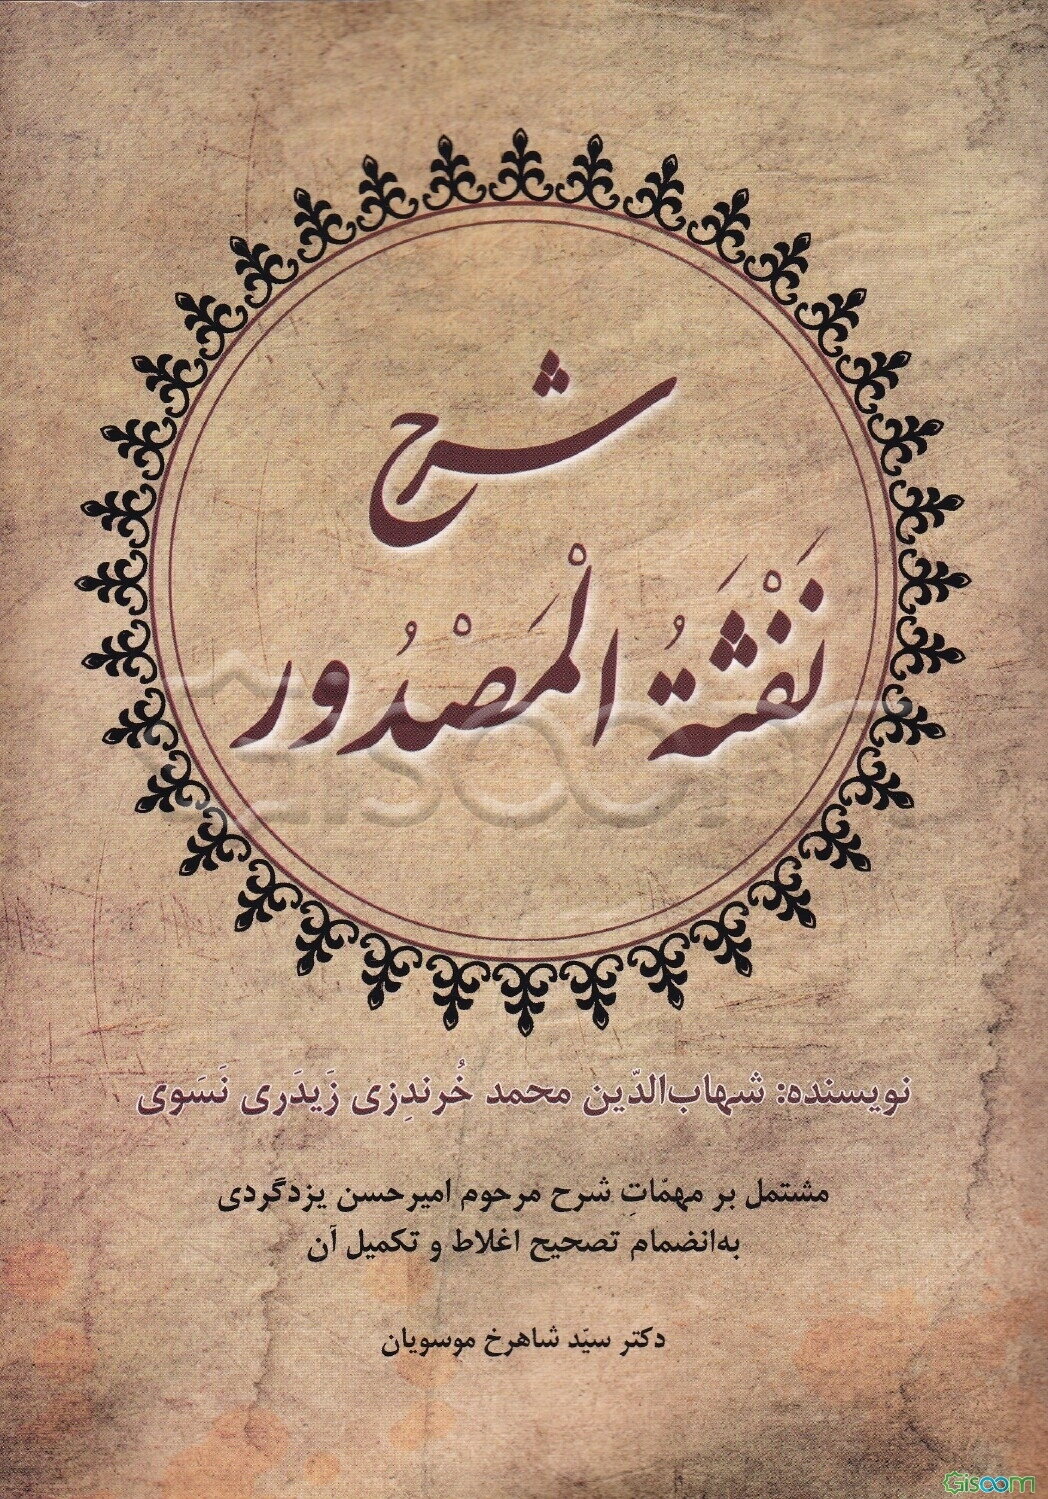 شرح
نَفْثَةُ الْمَصْدُور
نویسنده: شهاب‌الدّین محمد خُرندِزی زَیدَری نَسَوی
مشتمل بر مهمّاتِ شرح مرحوم امیرحسن یزدگردی
به‌انضمام تصحیح اغلاط و تکمیل آن
دکتر سیّد شاهرخ موسویان
Gisoom